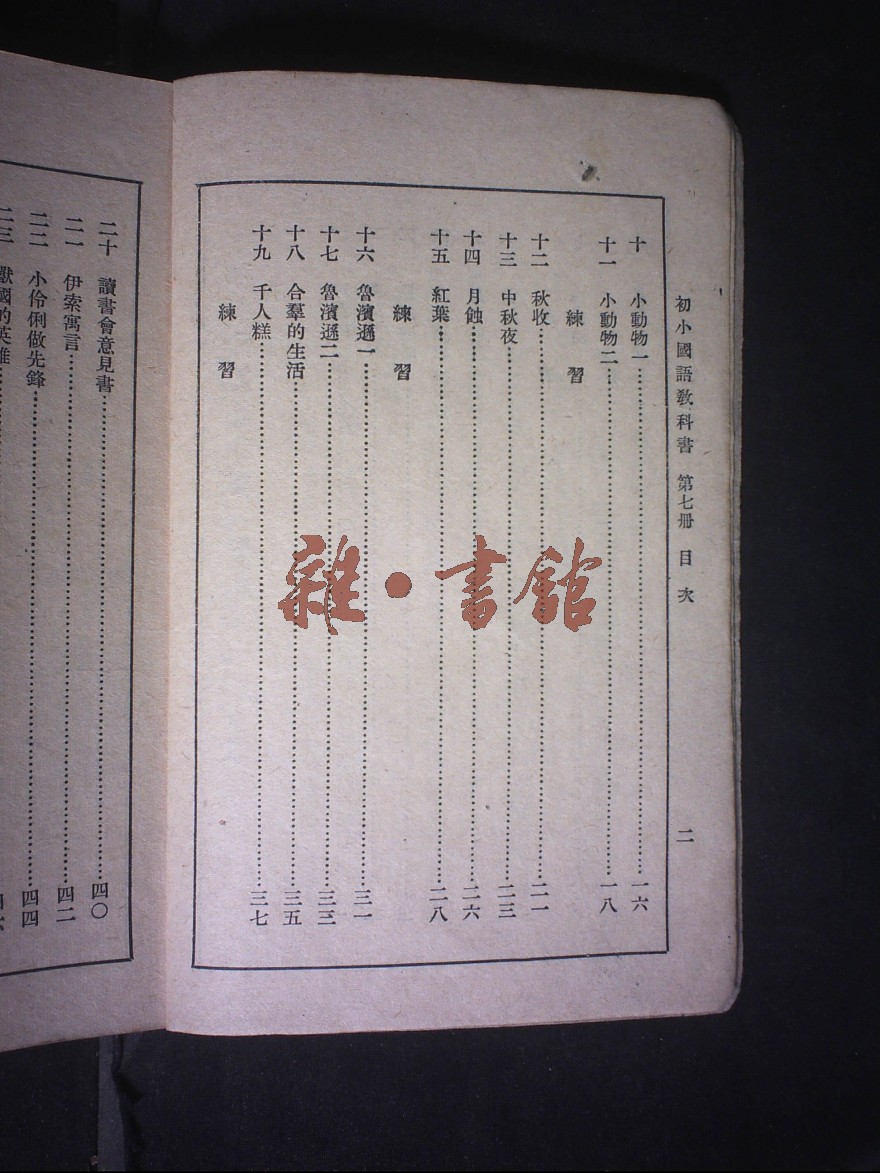 初小國語教科書 第七冊 目次 二
十 小動物一 一六
十一 小動物二 一八
練習
十二 秋收 二一
十三 中秋夜 二三
十四 月蝕 二六
十五 紅葉 二八
練習
十六 魯濱遜一 三一
十七 魯濱遜二 三三
十八 合羣的生活 三五
十九 千人糕 三七
練習
二十 讀書會意見書 四〇
二一 伊索寓言 四二
二二 小伶俐做先鋒 四四
二三 獸國的英雄
雜·書館